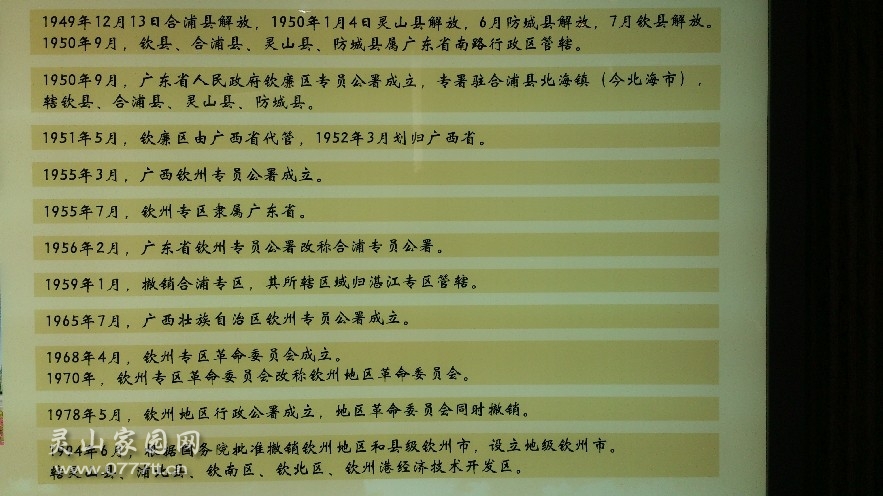 1949年12月13日合浦县解放，1950年1月4日灵山县解放，6月防城县解放，7月钦县解放。
1950年9月，钦县、合浦县、灵山县、防城县属广东省南路行政区管辖。
1950年9月，广东省人民政府钦廉区专员公署成立，专署驻合浦县北海镇（今北海市），
辖钦县、合浦县、灵山县、防城县。
1951年5月，钦廉区由广西省代管，1952年3月划归广西省。
1955年3月，广西钦州专员公署成立。
1955年7月，钦州专区隶属广东省。
1956年2月，广东省钦州专员公署改称合浦专员公署。
1959年1月，撤销合浦专区，其所辖区域归湛江专区管辖。
1965年7月，广西壮族自治区钦州专员公署成立。
1968年4月，钦州专区革命委员会成立。
1970年，钦州专区革命委员会改称钦州地区革命委员会。
1978年5月，钦州地区行政公署成立，地区革命委员会同时撤销。
1994年6月，根据国务院批准撤销钦州地区和县级钦州市，设立地级钦州市。
辖灵山县、浦北县、钦南区、钦北区、钦州港经济技术开发区。
灵山家园网